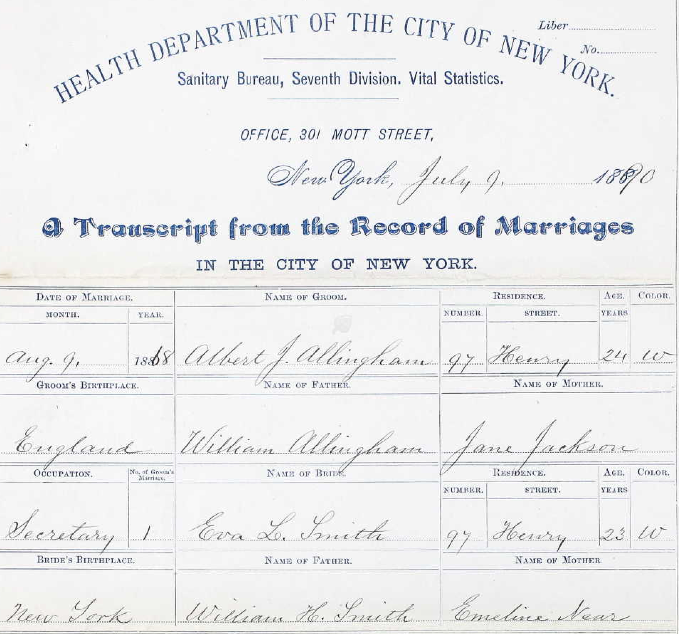 Liber
No.
HEALTH DEPARTMENT OF THE CITY OF NEW YORK.
Sanitary Bureau, Seventh Division. Vital Statistics.
OFFICE, 301 MOTT STREET,
New York, July 9. 1890
A Transcript from the Record of Marriages
IN THE CITY OF NEW YORK.
DATE OF MARRIAGE. NAME OF GROOM. RESIDENCE. AGE. COLOR.
MONTH. YEAR. NUMBER. STREET. YEARS
Aug. 9. 1868 Albert J. Allingham 97 Henry 24 W
GROOM'S BIRTHPLACE. NAME OF FATHER. NAME OF MOTHER.
England William Allingham Jane Jackson
OCCUPATION. No. of Groom's Marriage. NAME OF BRIDE. RESIDENCE. AGE. COLOR.
NUMBER. STREET. YEARS
Secretary 1 Eva L. Smith 97 Henry 23 W
BRIDE'S BIRTHPLACE. NAME OF FATHER. NAME OF MOTHER
New York William H. Smith Emeline Near